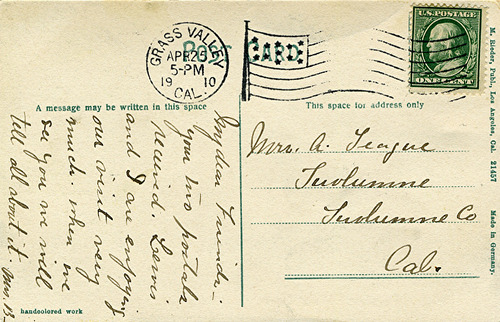 POST CARD
GRASS VALLEY
APR 25
5-PM
1910
CAL.
U.S. POSTAGE
ONE CENT
A message may be written in this space
This space for address only
My dear Friend:-
your two postals
received. Lewis
and I are enjoying
our visit very
much when we
see you we will
tell all about it. Mrs. B.
Mrs. A. Teague
Tuolumne
Tuolumne Co
Cal.
handcolored work
M. Rieder, Publ., Los Angeles, Cal. 21457
Made in Germany.